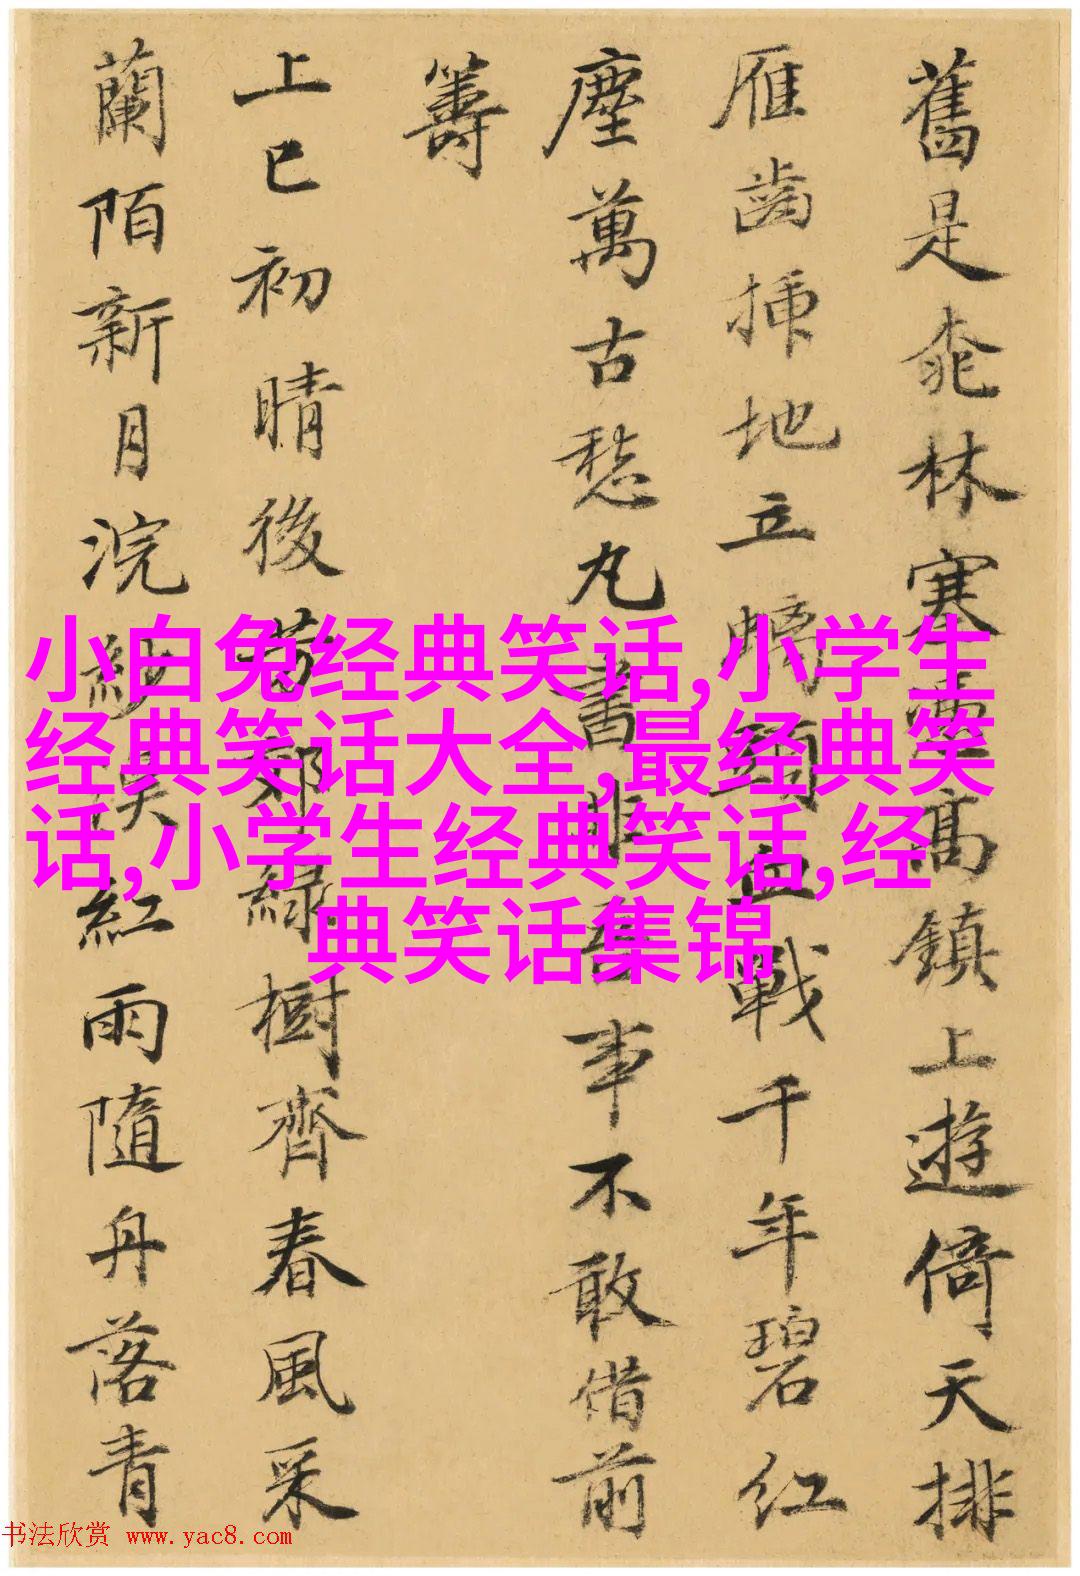 舊是林雲高鎮上遊倚天排
雁齒插地立螭頭血戰千年碧紅
塵萬古愁丸書非吾事不敢借前
籌
上巳初晴後芳郊綠樹齊春風采
蘭陌新月浣紗溪紅雨隨舟落青
小白兔经典笑话,小学生
经典笑话大全,最经典笑
话,小学生经典笑话,经
典笑话集锦
书法欣赏 www.yac8.com